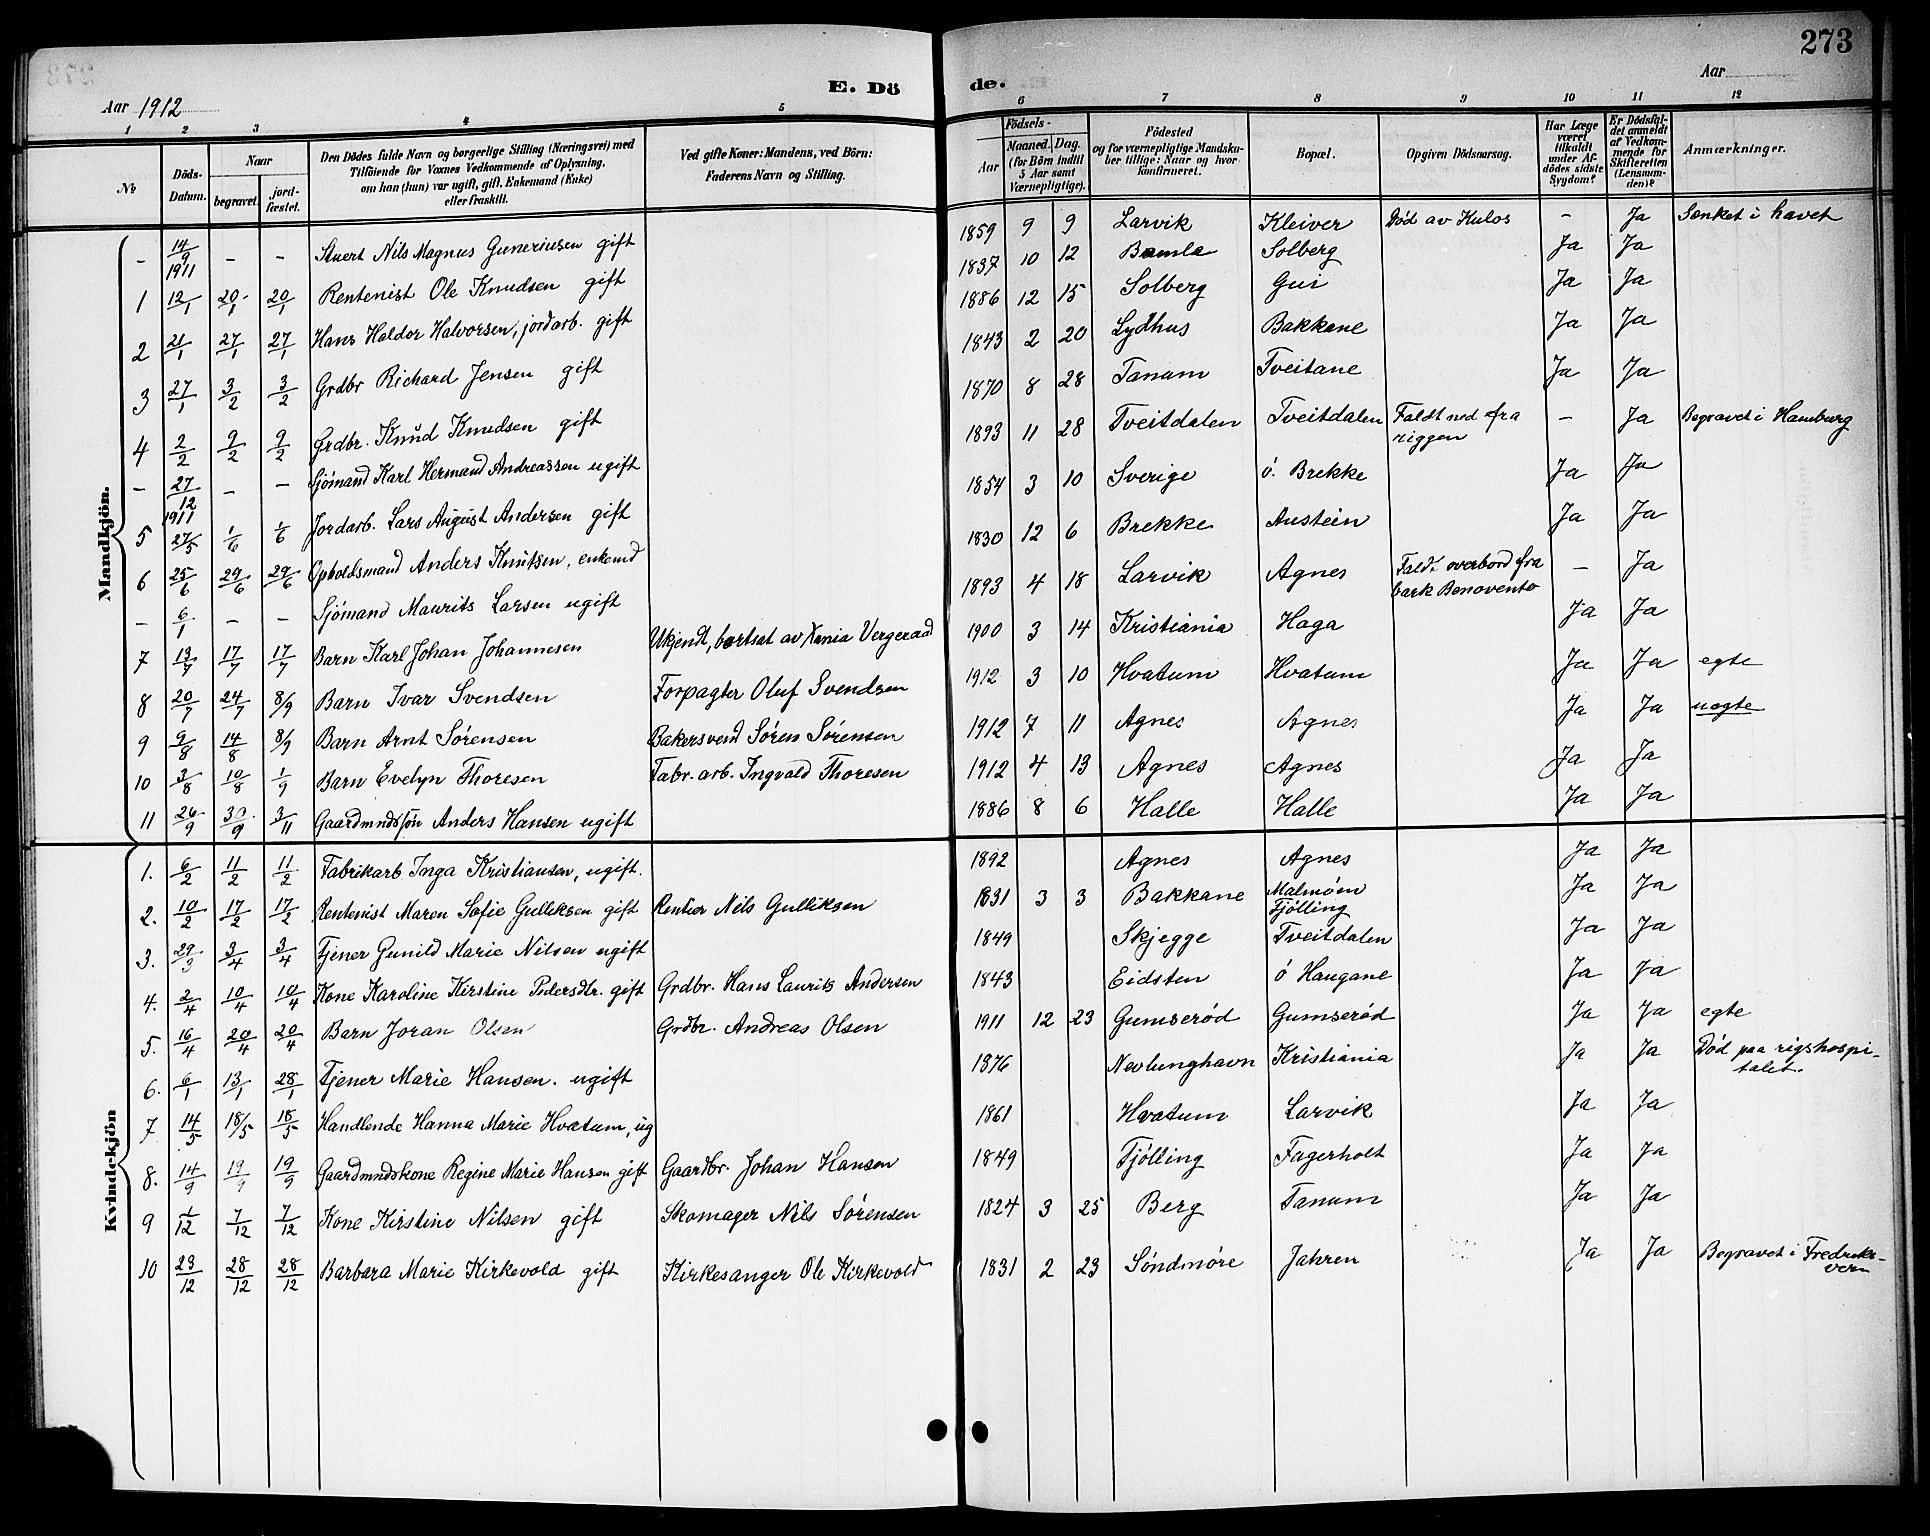 273
E. Dö de.
Aar 1912
Aar
1 2 3 4 5 6 7 8 9 10 11 12
No
Döds-Datum.
Naar
begravet.
jordfæstet.
Den Dödes fulde Navn og borgerlige Stilling (Næringsvei) med
Tilföiende for Voxnes Vedkommende af Oplysning,
om han (hun) var ugift, gift, Enkemand (Enke)
eller fraskilt.
Ved gifte Koner: Mandens, ved Börn:
Faderens Navn og Stilling.
Födsels-
Aar
Maaned. Dag.
(for Börn indtil
5 Aar samt
Værnepligtige).
Födested
og for værnepligtige Mandska-
ber tillige: Naar og hvor
konfirmeret.
Bopæl.
Opgiven Dödsaarsag.
Har Læge
været
tilkaldt
under Af-
dödes sidste
Sygdom?
Er Dödsfal-
det anmeldt
af Vedkom-
mende for
Skifteretten
(Lensman-
den)?
Anmærkninger.
Mandkjön.
- 14/9 1911 - - Stuert Nils Magnus Guneriusen gift 1859 9 9 Larvik Kleiver Död av Kulos - Ja Senket i havet
1 12/1 20/1 20/1 Rentenist Ole Knudsen gift 1837 10 12 Bamle Solberg Ja Ja
2 21/1 27/1 27/1 Hans Haldor Halvorsen, jordarb. gift 1886 12 15 Solberg Gui Ja Ja
3 27/1 3/2 3/2 Grdbr Richard Jensen gift 1843 2 20 Lydhus Bakkane Ja Ja
4 2/2 9/2 9/2 Grdbr. Knud Knudsen gift 1870 8 28 Tanum Tveitane Ja Ja
- 27/12 1911 - - Sjömand Karl Hermand Andreassen ugift 1893 11 28 Tveitdalen Tveitdalen Faldt ned fra riggen - Ja Begravet i Hamburg
5 27/5 1/6 1/6 Jordarb. Lars August Andersen gift 1854 3 10 Sverige ö. Brekke Ja Ja
6 25/6 29/6 29/6 Opholdsmand Anders Knutsen, enkemd 1830 12 6 Brekke Austein Ja Ja
- 6/1 - - Sjömand Maurits Larsen ugift 1893 4 18 Larvik Agnes Faldt overbord fra bark Benovento - Ja
7 13/7 17/7 17/7 Barn Karl Johan Johannesen Ukjendt, bortsat av Xania Vergeraad 1900 3 14 Kristiania Haga Ja Ja
8 20/7 24/7 8/9 Barn Ivar Svendsen Forpagter Oluf Svendsen 1912 3 10 Hvatum Hvatum Ja Ja egte
9 9/8 14/8 8/9 Barn Arnt Sörensen Bakersvend Sören Sörensen 1912 7 11 Agnes Agnes Ja Ja uegte
10 3/8 10/8 1/9 Barn Evelyn Thoresen Fabr. arb. Ingvald Thoresen 1912 4 13 Agnes Agnes Ja Ja
11 26/9 30/9 3/11 Gaardmndssön Anders Hansen ugift 1886 8 6 Halle Halle Ja Ja
Kvindekjön
1. 6/2 11/2 11/2 Fabrikarb. Inga Kristiansen, ugift. 1892 Agnes Agnes Ja Ja
2. 10/2 17/2 17/2 Rentenist Maren Sofie Gulliksen gift Rentier Nils Gulliksen 1831 3 3 Bakkane Malmöen Tjölling Ja Ja
3. 29/3 3/4 3/4 Tjener Gunild Marie Nilsen ugift 1849 Skjegge Tveitdalen Ja Ja
4. 2/4 10/4 10/4 Kone Karoline Kirstine Pedersdtr. gift Grdbr. Hans Laurits Andersen 1843 Eidsten ö Haugane Ja Ja
5. 16/4 20/4 20/4 Barn Joran Olsen Grdbr. Andreas Olsen 1911 12 23 Gumseröd Gumseröd Ja Ja egte
6. 6/1 13/1 28/1 Tjener Marie Hansen. ugift 1876 Nevlunghavn Kristiania Ja Ja Död paa rigshospi-talet.
7 14/5 18/5 18/5 Handlende Hanna Marie Hvatum, ug 1861 Hvatum Larvik Ja Ja
8. 14/9 19/9 19/9 Gaardmndskone Regine Marie Hansen gift Gaardbr. Johan Hansen 1849 Tjölling Fagerholt Ja Ja
9 1/12 7/12 7/12 Kone Kirstine Nilsen gift Skomager Nils Sörensen 1824 3 25 Berg Tanum Ja Ja
10 23/12 28/12 28/12 Barbara Marie Kirkevold gift Kirkesanger Ole Kirkevold 1831 2 23 Söndmöre Jahren Ja Ja Begravet i Fredriks-vern